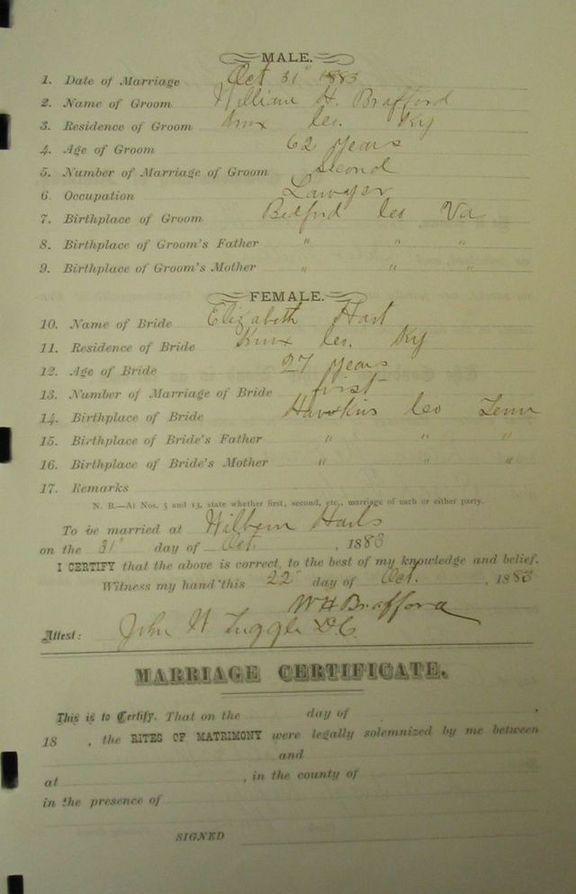 MALE.
1. Date of Marriage Oct 31" 1883
2. Name of Groom William H. Brafford
3. Residence of Groom Knox Co. Ky
4. Age of Groom 62 years
5. Number of Marriage of Groom Second
6. Occupation Lawyer
7. Birthplace of Groom Bedford Co Va
8. Birthplace of Groom's Father " " "
9. Birthplace of Groom's Mother " " "
FEMALE.
10. Name of Bride Elizabeth Hart
11. Residence of Bride Knox Co. Ky
12. Age of Bride 27 years
13. Number of Marriage of Bride first
14. Birthplace of Bride Hawkins Co Tenn
15. Birthplace of Bride's Father " " "
16. Birthplace of Bride's Mother " " "
17. Remarks
N. B.—At Nos. 5 and 13, state whether first, second, etc., marriage of each or either party.
To be married at Wilbern
on the 31" day of Oct. , 1883
I CERTIFY that the above is correct, to the best of my knowledge and belief.
Witness my hand this 22" day of Oct. , 1883
W H Brafford
Attest: John W Tuggle D.C.
MARRIAGE CERTIFICATE.
This is to Certify, That on the day of
18 , the RITES OF MATRIMONY were legally solemnized by me between
and
at , in the county of
in the presence of
SIGNED